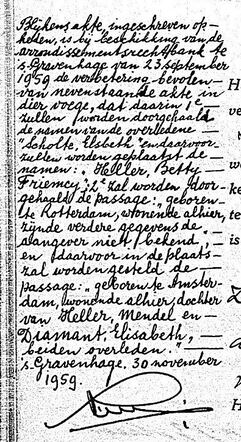 Blijkens akte, ingeschreven op
heden, is bij beschikking van de
arrondissementsrechtbank te
s Gravenhage van 23 september
1959 de verbetering bevolen
van nevenstaande akte in
dier voege, dat daarin 1e
zullen worden doorgehaald
de namen van de overledene
"Scholte, Elsbeth" en daarvoor
zullen worden geplaatst de
namen: "Heller, Betty
Friemcy; 2e zal worden door-
gehaald de passage: "geboren
te Rotterdam, wonende alhier,
zijnde verdere gegevens de
aangever niet bekend,
en daarvoor in de plaats
zal worden gesteld de
passage: "geboren te Amster-
dam, wonende alhier, dochter
van Heller, Mendel en
Diamant, Elisabeth,
beiden overleden."
s Gravenhage, 30 november
1959.